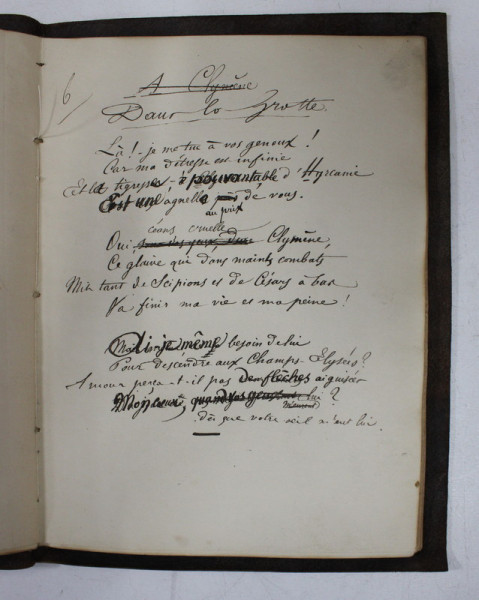 6
A Clymène
Dans la Grotte
Là ! je me tue à vos genoux !
Car ma détresse est infinie
Et la tigresse épouvantable d'Hyrcanie
Est une agnelle au prix de vous.
Oui, céans, cruelle Clymène,
Ce glaive qui dans maints combats
Mit tant de Scipions et de Césars à bas
Va finir ma vie et ma peine !
Ai-je même besoin de lui
Pour descendre aux Champs-Élysées ?
Amour perça-t-il pas de flèches aiguisées
Mon cœur,
dès que votre œil m'eut lui ?